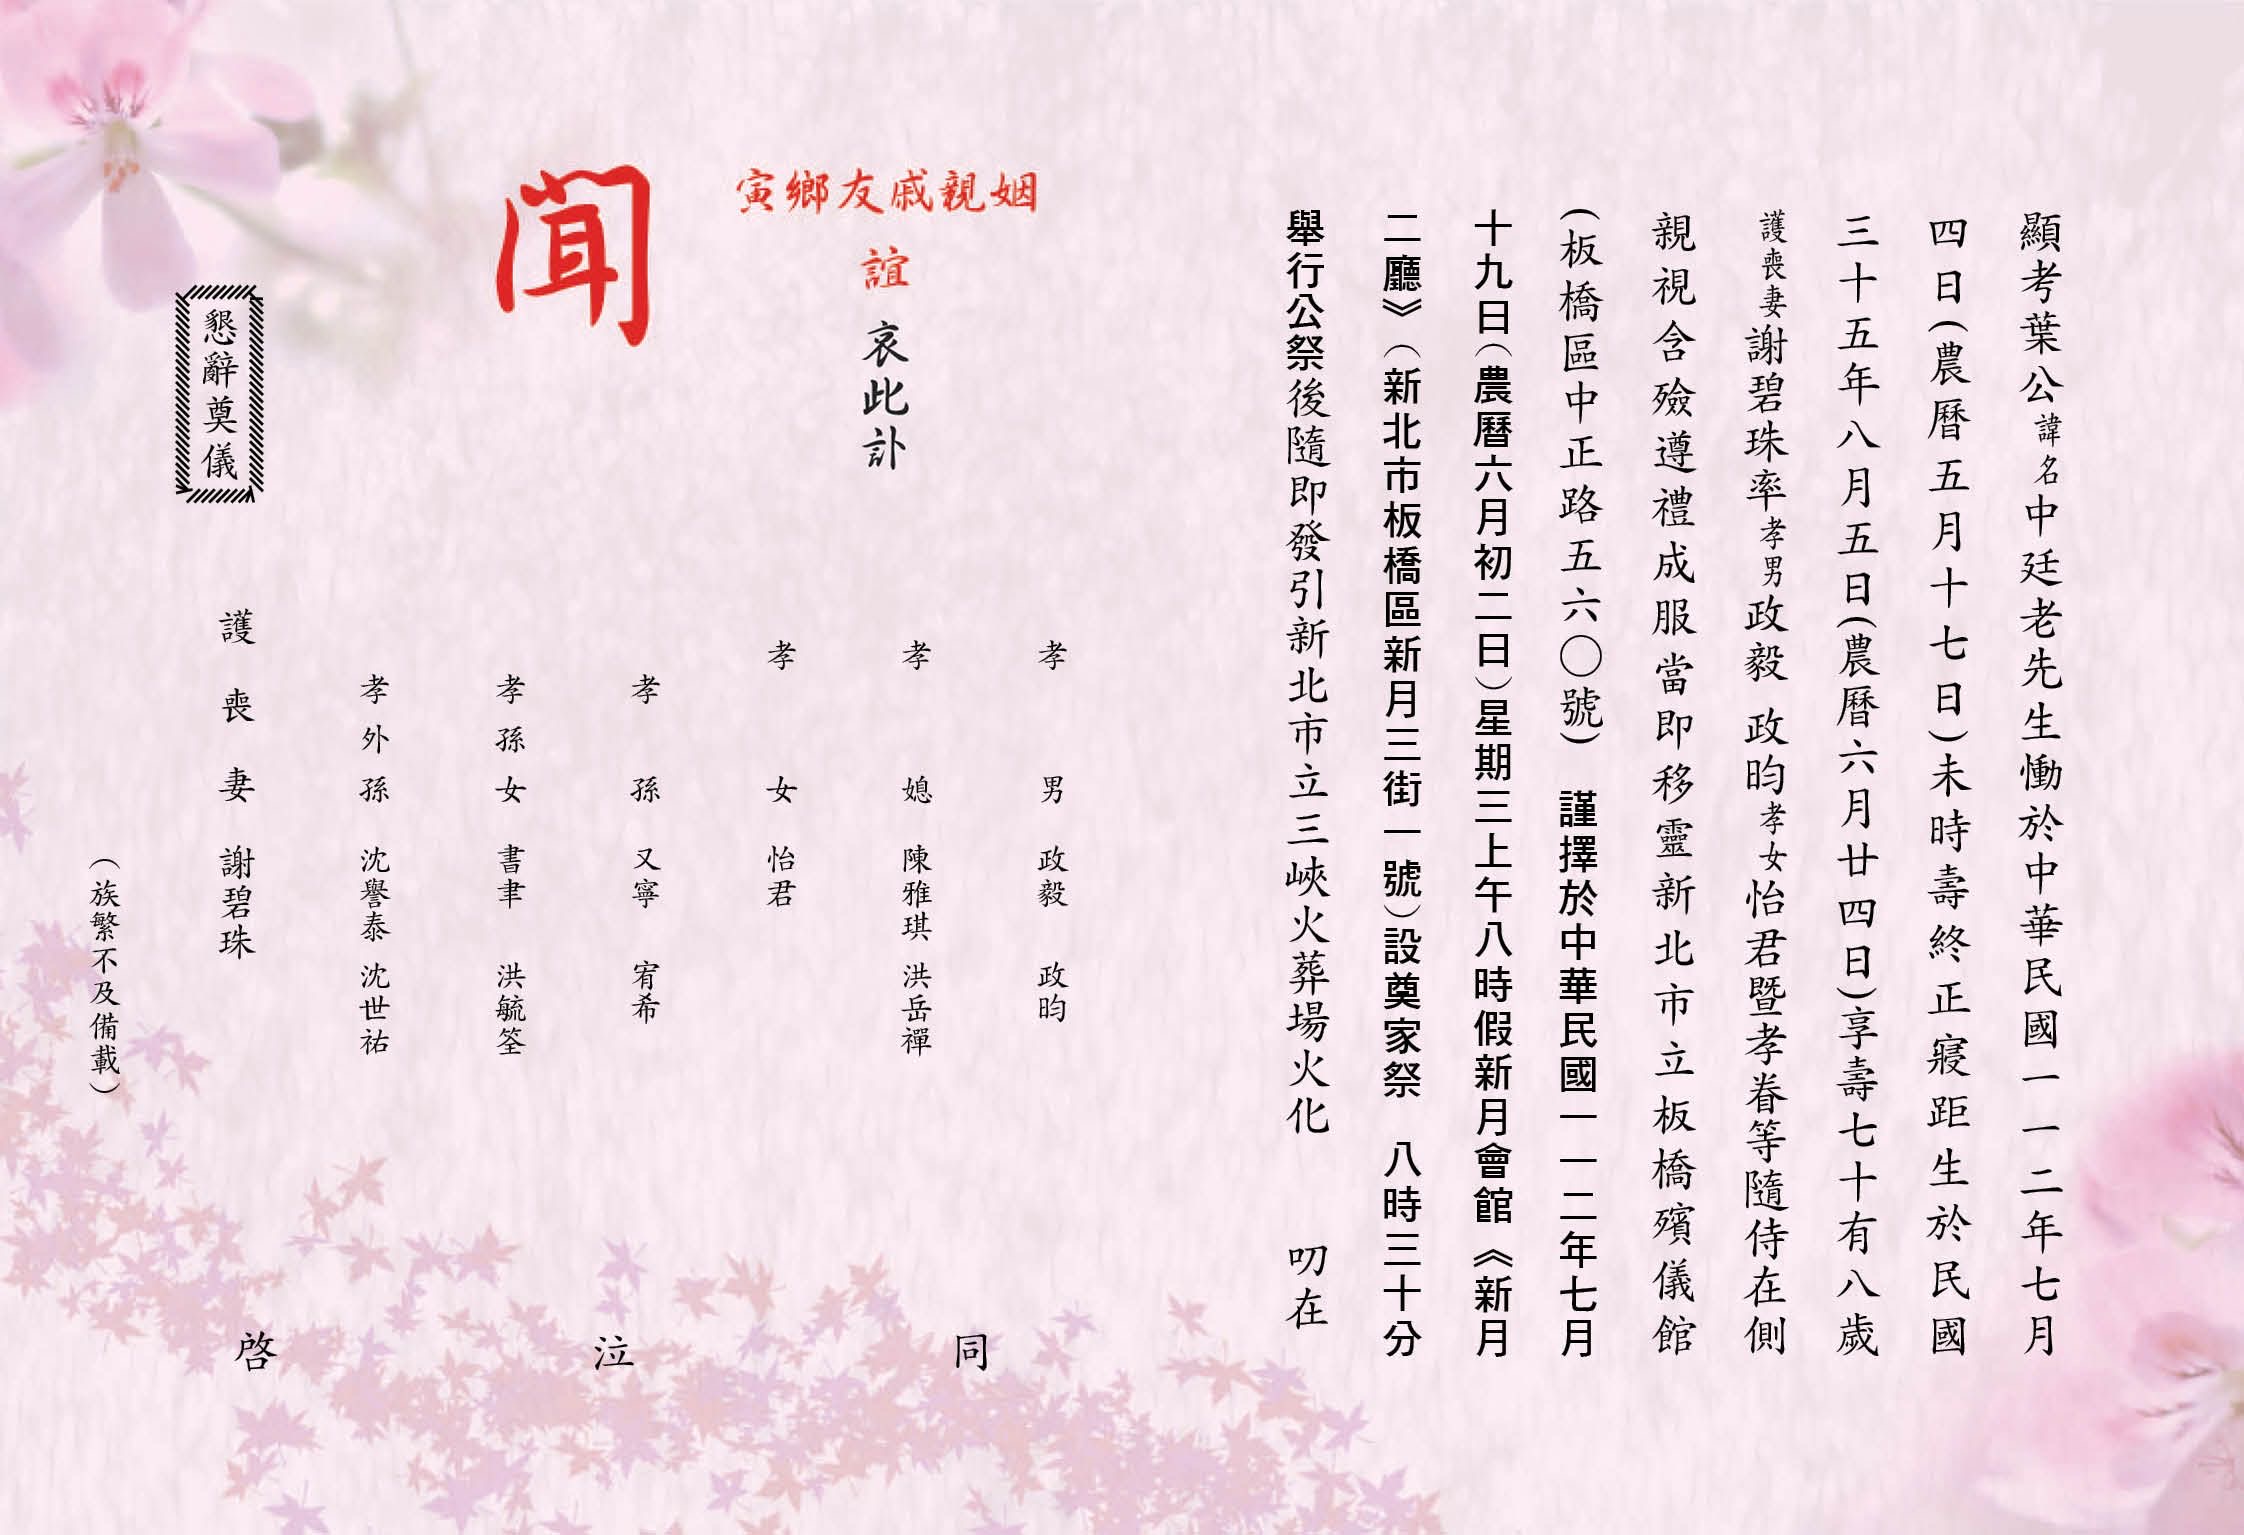 顯考葉公諱名中廷老先生慟於中華民國一一二年七月
四日(農曆五月十七日)未時壽終正寢距生於民國
三十五年八月五日(農曆六月廿四日)享壽七十有八歲
護喪妻謝碧珠率孝男政毅 政昀孝女怡君暨孝眷等隨侍在側
親視含殮遵禮成服當即移靈新北市立板橋殯儀館
(板橋區中正路五六〇號) 謹擇於中華民國一一二年七月
十九日(農曆六月初二日)星期三上午八時假新月會館《新月
二廳》(新北市板橋區新月三街一號)設奠家祭 八時三十分
舉行公祭後隨即發引新北市立三峽火葬場火化 叨在
姻親戚友鄉寅
誼 哀此訃
聞
孝男 政毅 政昀
孝媳 陳雅琪 洪岳禪
孝女 怡君
孝孫 又寧 宥希
孝孫女 書聿 洪毓筌
孝外孫 沈譽泰 沈世祐
護喪妻 謝碧珠
(族繁不及備載)
同泣啓
懇辭奠儀